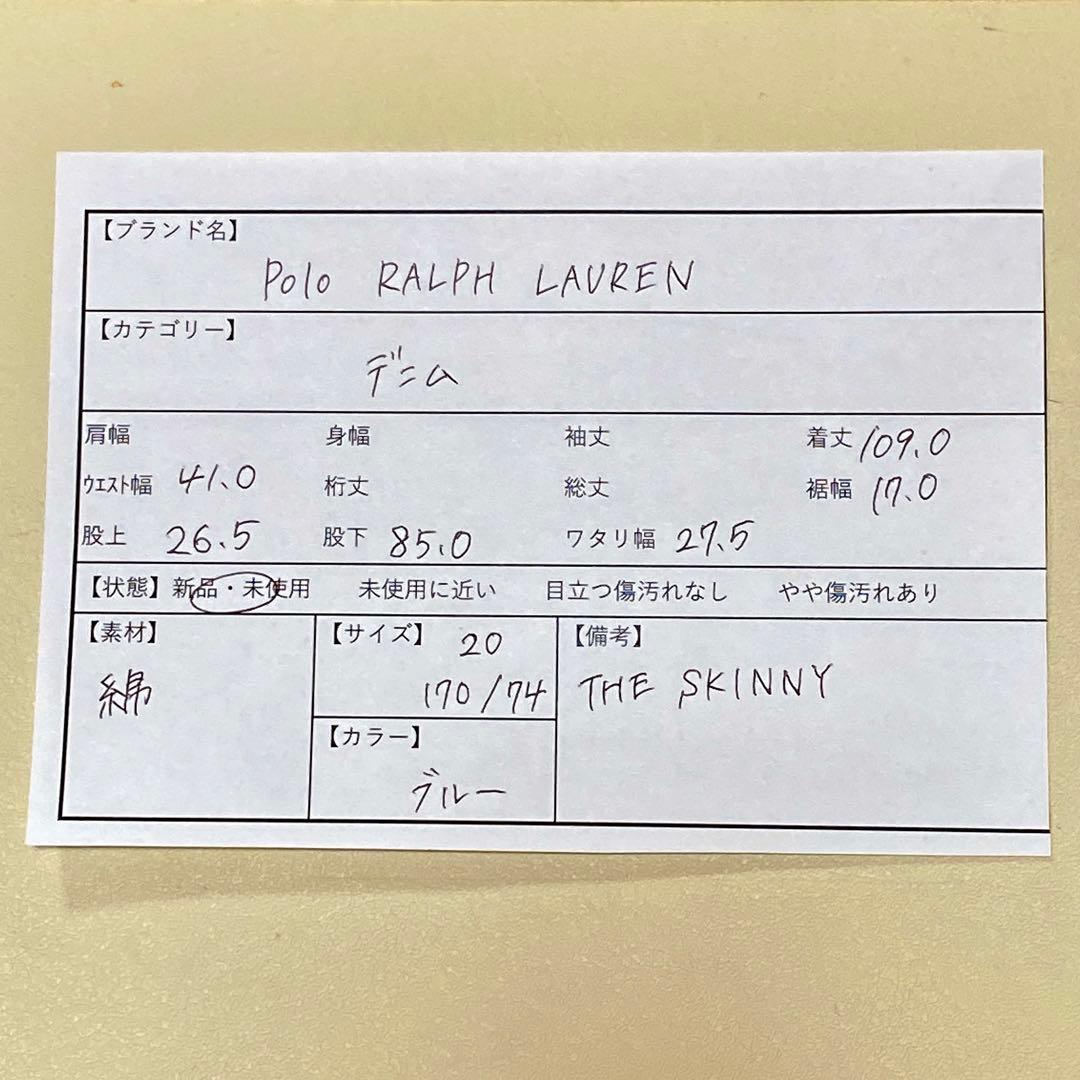 【ブランド名】
Polo RALPH LAUREN
【カテゴリー】
デニム
肩幅 身幅 袖丈 着丈 109.0
ウエスト幅 41.0 裄丈 総丈 裾幅 17.0
股上 26.5 股下 85.0 ワタリ幅 27.5
【状態】新品・未使用 未使用に近い 目立つ傷汚れなし やや傷汚れあり
【素材】
綿
【サイズ】 20
170/74
【カラー】
ブルー
【備考】
THE SKINNY